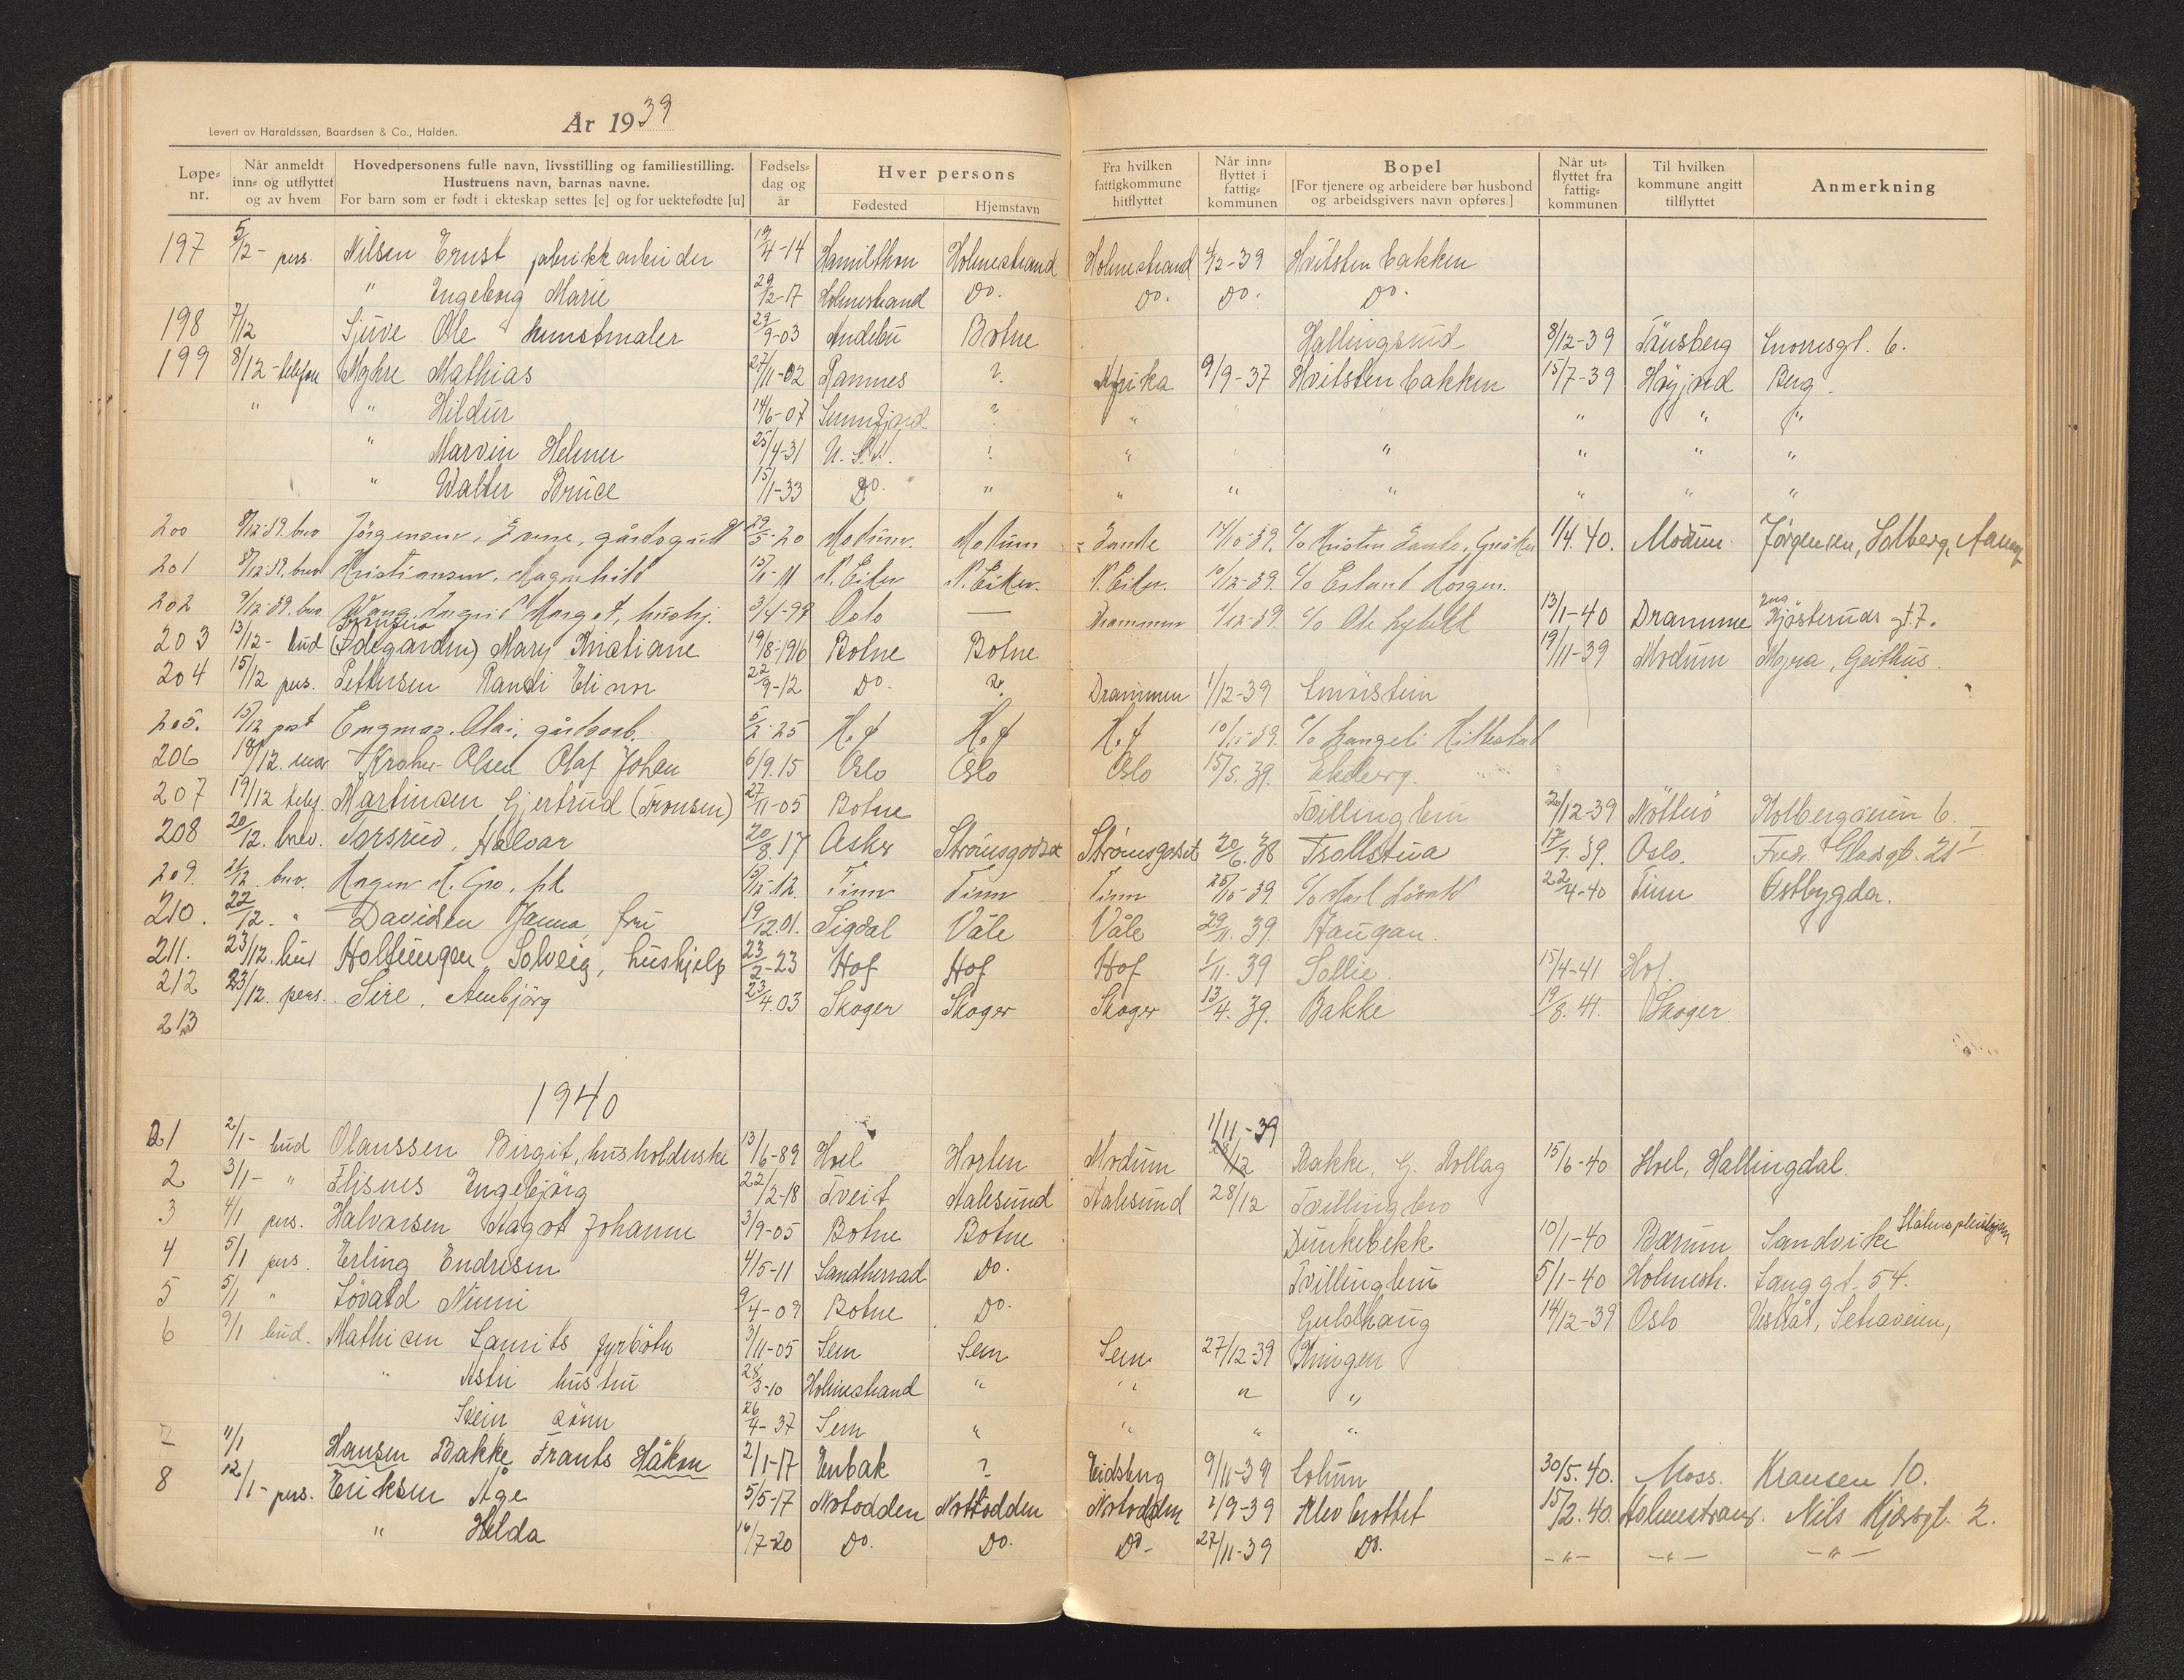 År 1939
Levert av Haraldssøn, Baardsen & Co., Halden.
Løpe-nr. Når anmeldt inn- og utflyttet og av hvem Hovedpersonens fulle navn, livsstilling og familiestilling. Hustruens navn, barnas navne. For barn som er født i ekteskap settes [e] og for uektefødte [u] Fødsels-dag og år Hver persons Fødested Hjemstavn Fra hvilken fattigkommune hitflyttet Når inn-flyttet i fattig-kommunen Bopel [For tjenere og arbeidere bør husbond og arbeidsgivers navn opføres.] Når ut-flyttet fra fattig-kommunen Til hvilken kommune angitt tilflyttet Anmerkning
197 5/12 - pers. Nilsen Ernst fabrikkarbeider 19/4-14 Hamilthon Holmestrand Holmestrand 4/12-39 Hvitstenbakken
" Engeborg Marie 29/12-17 Holmestrand Do. Do. Do. Do.
198 7/12 Sjuve Ole kunstmaler 29/9-03 Andebu Botne Hallingsrud 8/12-39 Tønsberg Snorresgt. 6.
199 8/12 - telefon Myhre Mathias 27/11-02 Ramnes ? Afrika 9/9-37 Hvitstenbakken 15/7-39 Høyjord Berg.
" " Hildur 14/6-07 Sunnfjord ? " " " " "
" Marvin Helmer 25/4-31 U.S.A. ? " " " " "
" Walter Bruce 15/1-33 Do. " " " " " " "
200 8/12-39. brev Jørgensen, gårdsgutt 29/5-20 Modum. Modum Sande 14/10-39. c/o Kristen Sande, 1/4.40. Modum Jørgensen, Solberg,
201 8/12-39. brev Kristiansen, Magnhild 15/1-11 N. Eiker N. Eiker. N. Eiker. 10/12-39. c/o Erland Horgen.
202 9/12-39. brev Wang, Ingrid Margot, hushj. 3/4-99 Oslo — Drammen 1/12-39. c/o Ole 13/1-40 Dramme Kjøsteruds gt. 7.
203 13/12 - bud (Ødegården) Mary Kristiane 19/8-1916 Botne Botne 19/11-39 Modum Myra, Geithus.
204 15/12 pers. Pettersen Randi Elinor 22/9-12 Do. Do. Drammen 1/12-39 Smørstein
205. 15/12 post Engmar. Olai, gårdsarb. 5/2-25 Hof Hof Hof 10/10-39. c/o Hillestad
206 18/12. Krohn-Olsen Olaf Johan 6/9.15 Oslo Oslo Oslo 15/5.39. Ekeberg.
207 19/12 telef. Martinsen Gjertrud (Tronsen) 27/11-05 Botne Tvillingbru 20/12-39 Nøtterø Kolbergveien 6.
208 20/12. brev. Torsrud, Halvar 20/8.17 Asker Strømsgodset Strømsgodset 20/6.38 Trollstua 17/7.39. Oslo. Fredr. Gladsgt. 21 I
209. 21/12. brev. Hagen H. Gro, frk 15/12-12 Tinn Tinn Tinn 25/10-39 c/o Karl 22/4-40 Tinn Østbygda.
210. 22/12. " Davidsen Janna, fru 19/12.01. Sigdal Våle Våle 29/11.39. Haugan.
211. 23/12. bud Holtungen Solveig, hushjelp 23/2-23 Hof Hof Hof 1/11.39 Sollie. 15/4-41 Hof.
212 23/12. pers. Sire, Anbjørg 23/4.03 Skoger Skoger Skoger 13/4.39. Bakke 19/8.41. Skoger
213
1940
1/11-39
1 2/1 - bud Olaussen Birgit, husholderske 13/6-89 Hoel Horten Modum 28/12 Bakke, G. Rollag 15/6-40 Hoel, Hallingdal.
2 3/1 - " Flisnes Engebjørg 22/12-18 Tveit Aalesund Aalesund 28/12 Tvillingbro
3 4/1 pers. Halvorsen Aagot Johanne 3/9-05 Botne Botne Dunkebekk 10/1-40 Bærum Sandvika
4 5/1 pers. Erling Endresen 4/5-11 Sandherrad Do. Tvillingbru 5/1-40 Holmestr. Langgt. 54.
5 5/1 " Løvald Ninni 9/4-09 Botne Do. Guldhaug 14/12-39 Oslo Setraveien,
6 9/1 bud. Mathisen Laurits fyrbøter 3/11-05 Sem Sem Sem 27/12-39 Kringen
" Astri hustru 28/3-10 Holmestrand " " " "
Svein sønn 26/4-37 Sem " " " "
7 11/1 Hansen Bakke Frants Håkon 2/1-17 Enbak ? Eidsberg 9/11-39 Solum 30/5.40. Moss. Kransen 10.
8 12/1 - pers. Eriksen Åge 5/5-17 Notodden Nottodden Notodden 2/9-39 Klevbrottet 15/2.40. Holmestrand. Nils Kjærsgt. 2.
" Helda 16/7-20 Do. Do. Do- 27/11-39 Do. -"- -"- -"-